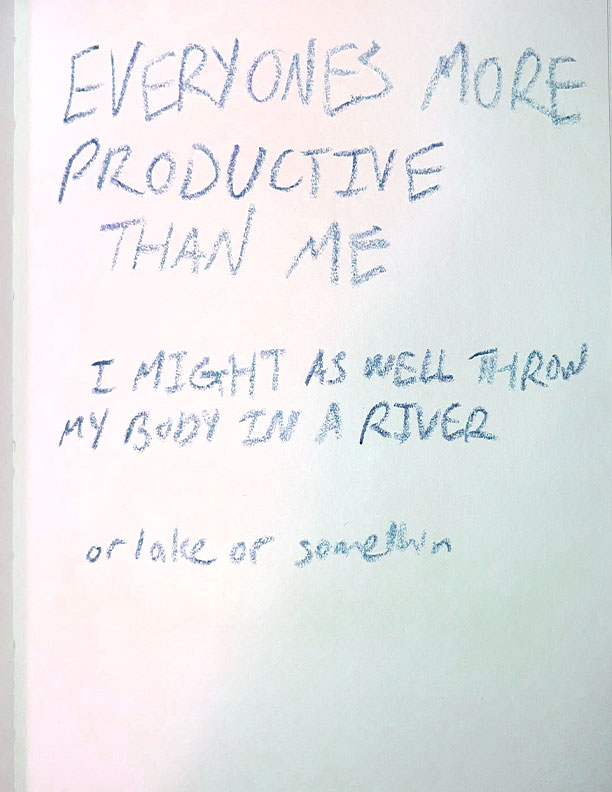 EVERYONES MORE
PRODUCTIVE
THAN ME
I MIGHT AS WELL THROW
MY BODY IN A RIVER
or lake or somethin